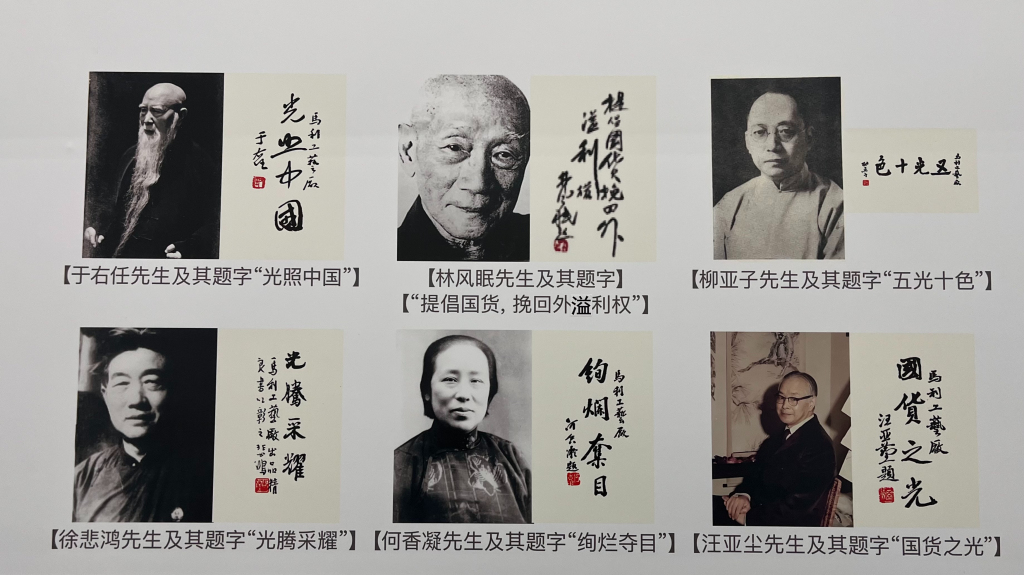 馬利工藝廠
光照中國
于右任
提倡國貨挽回外
溢利權
馬利工藝廠
五光十色
柳亞子
【于右任先生及其题字“光照中国”】
【林风眠先生及其题字】
【“提倡国货，挽回外溢利权”】
【柳亚子先生及其题字“五光十色”】
光騰采耀
馬利工藝廠出品精
良書以彰之 悲鴻
馬利工藝廠
絢爛奪目
何香凝題
馬利工藝廠
國貨之光
汪亞塵題
【徐悲鸿先生及其题字“光腾采耀”】
【何香凝先生及其题字“绚烂夺目”】
【汪亚尘先生及其题字“国货之光”】